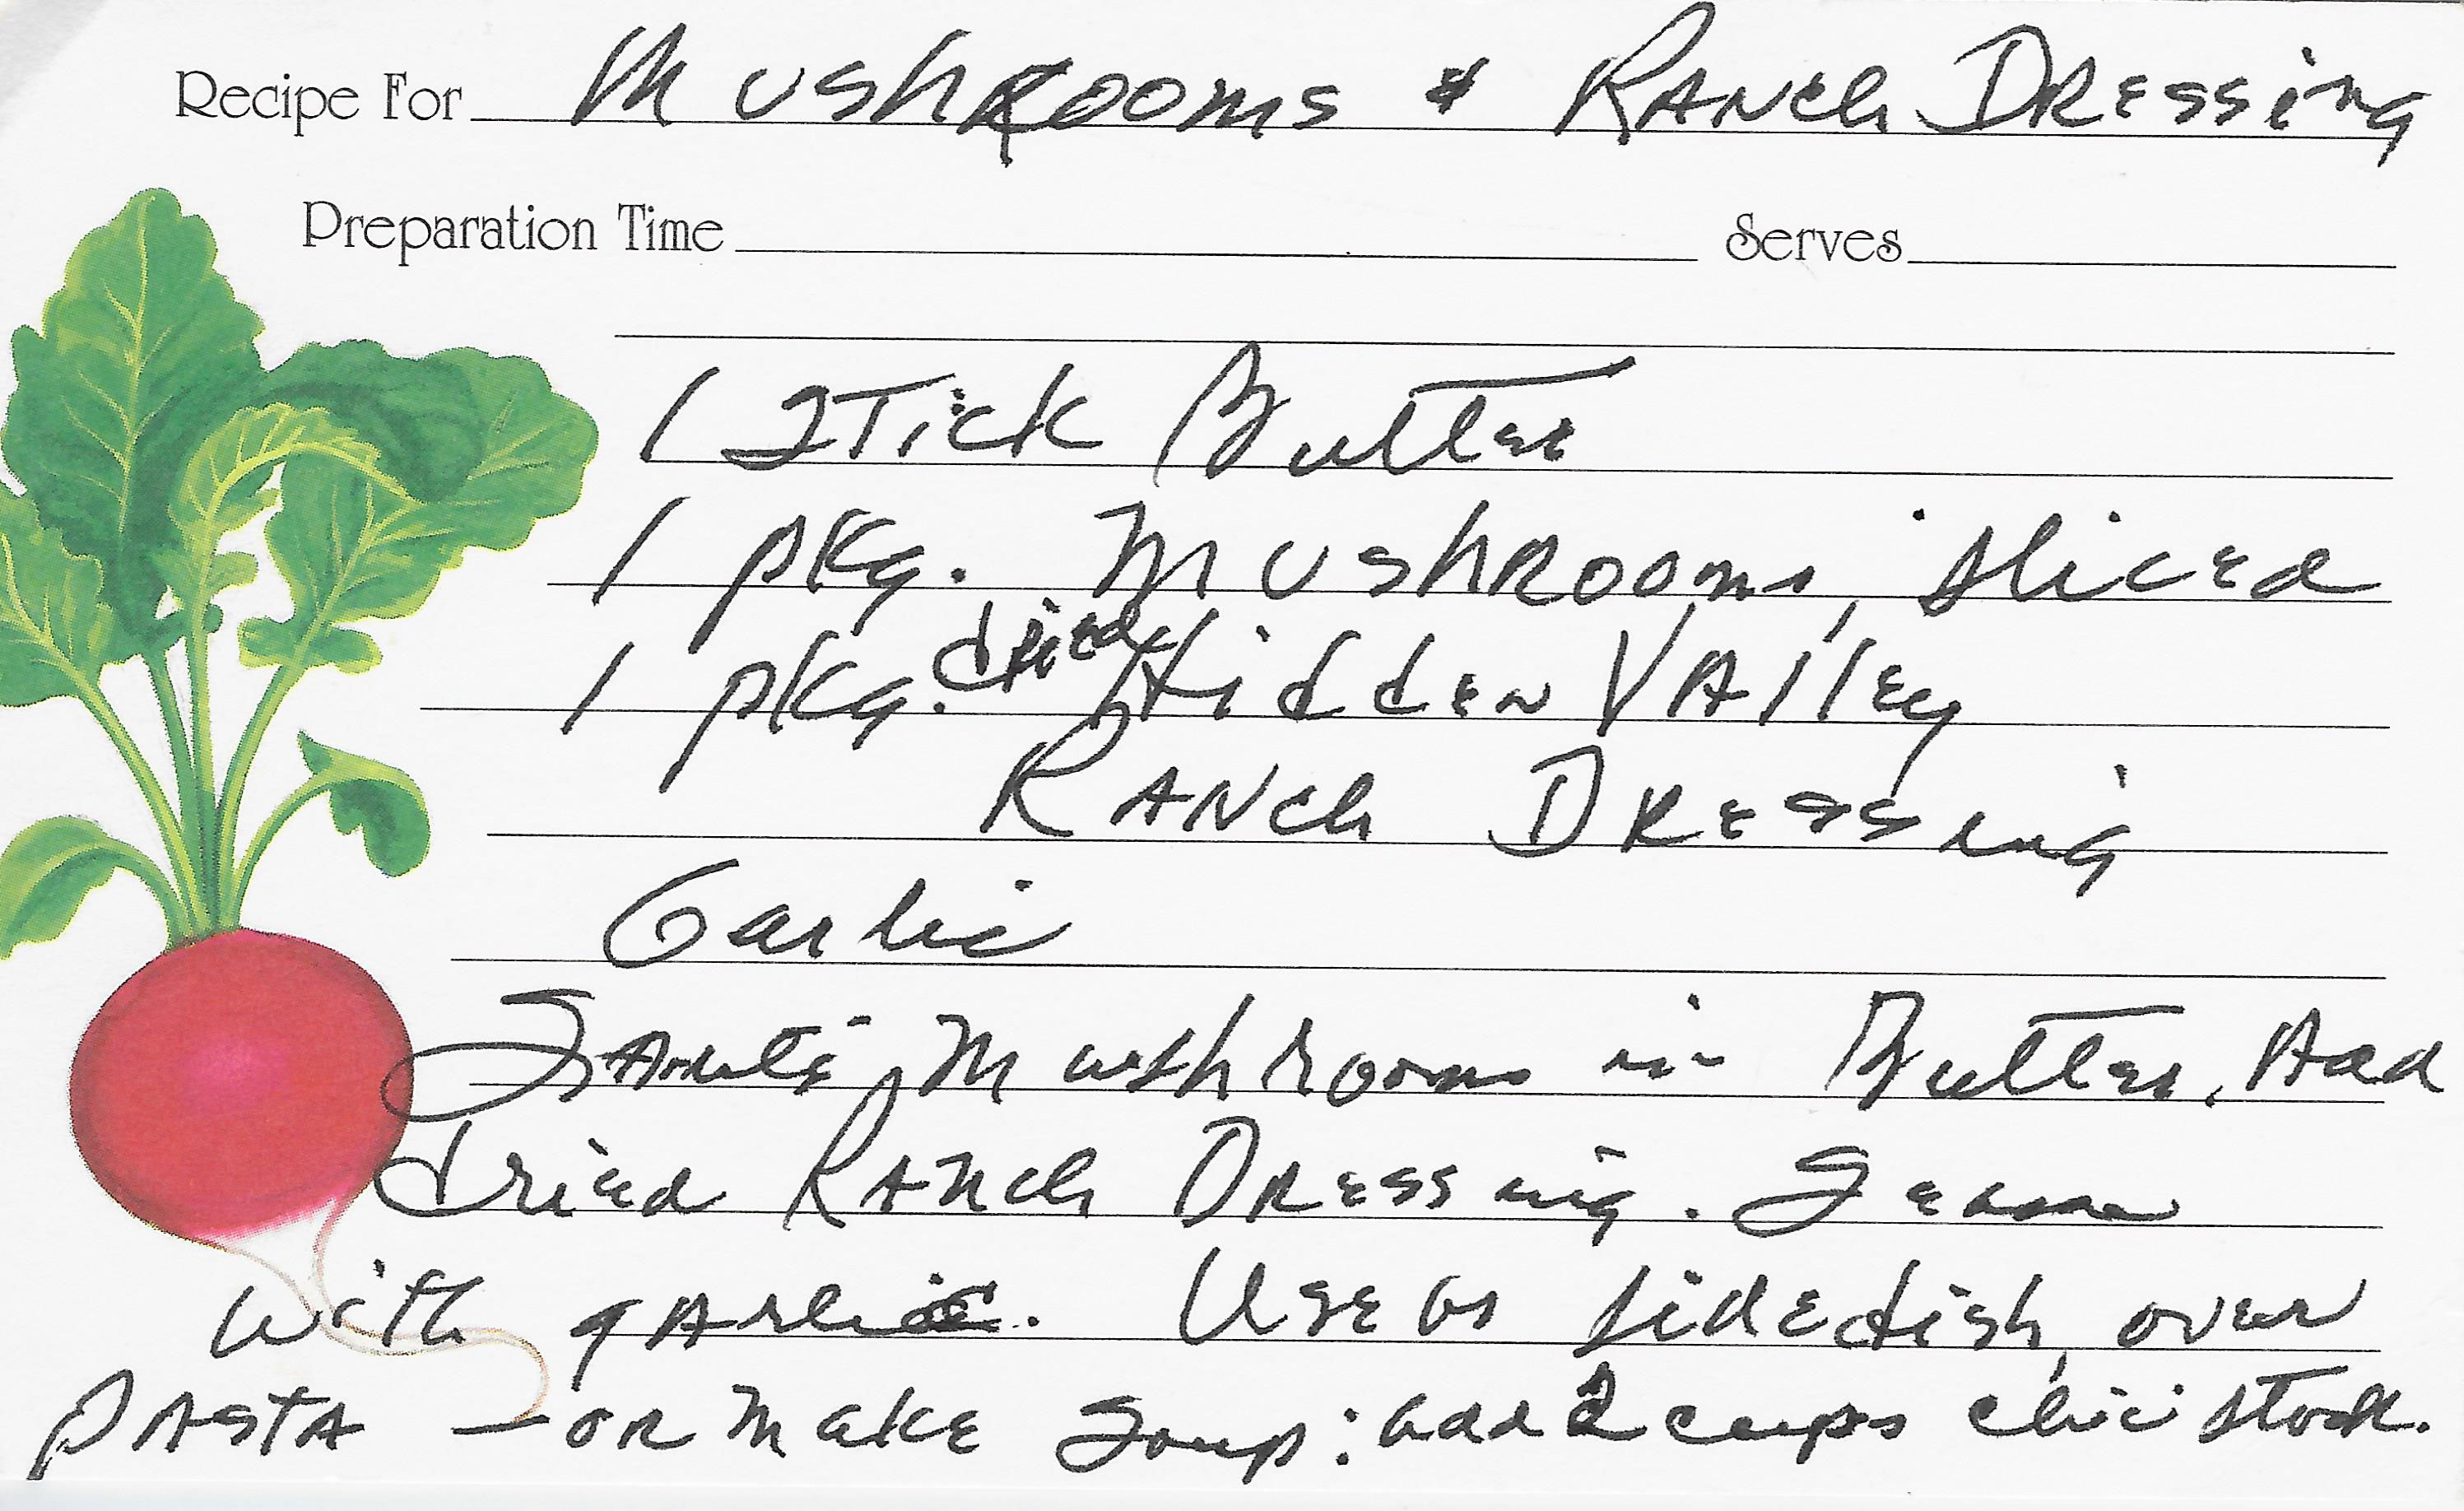 Recipe For Mushrooms & Ranch Dressing
Preparation Time Serves
1 Stick Butter
1 pkg. Mushrooms, sliced
1 pkg. dried Hidden Valley
Ranch Dressing
Garlic
Sauté Mushrooms in Butter. Add
dried Ranch Dressing. Season
with garlic. Use as sidedish, over
Pasta — or make Soup: add 2 cups chic stock.